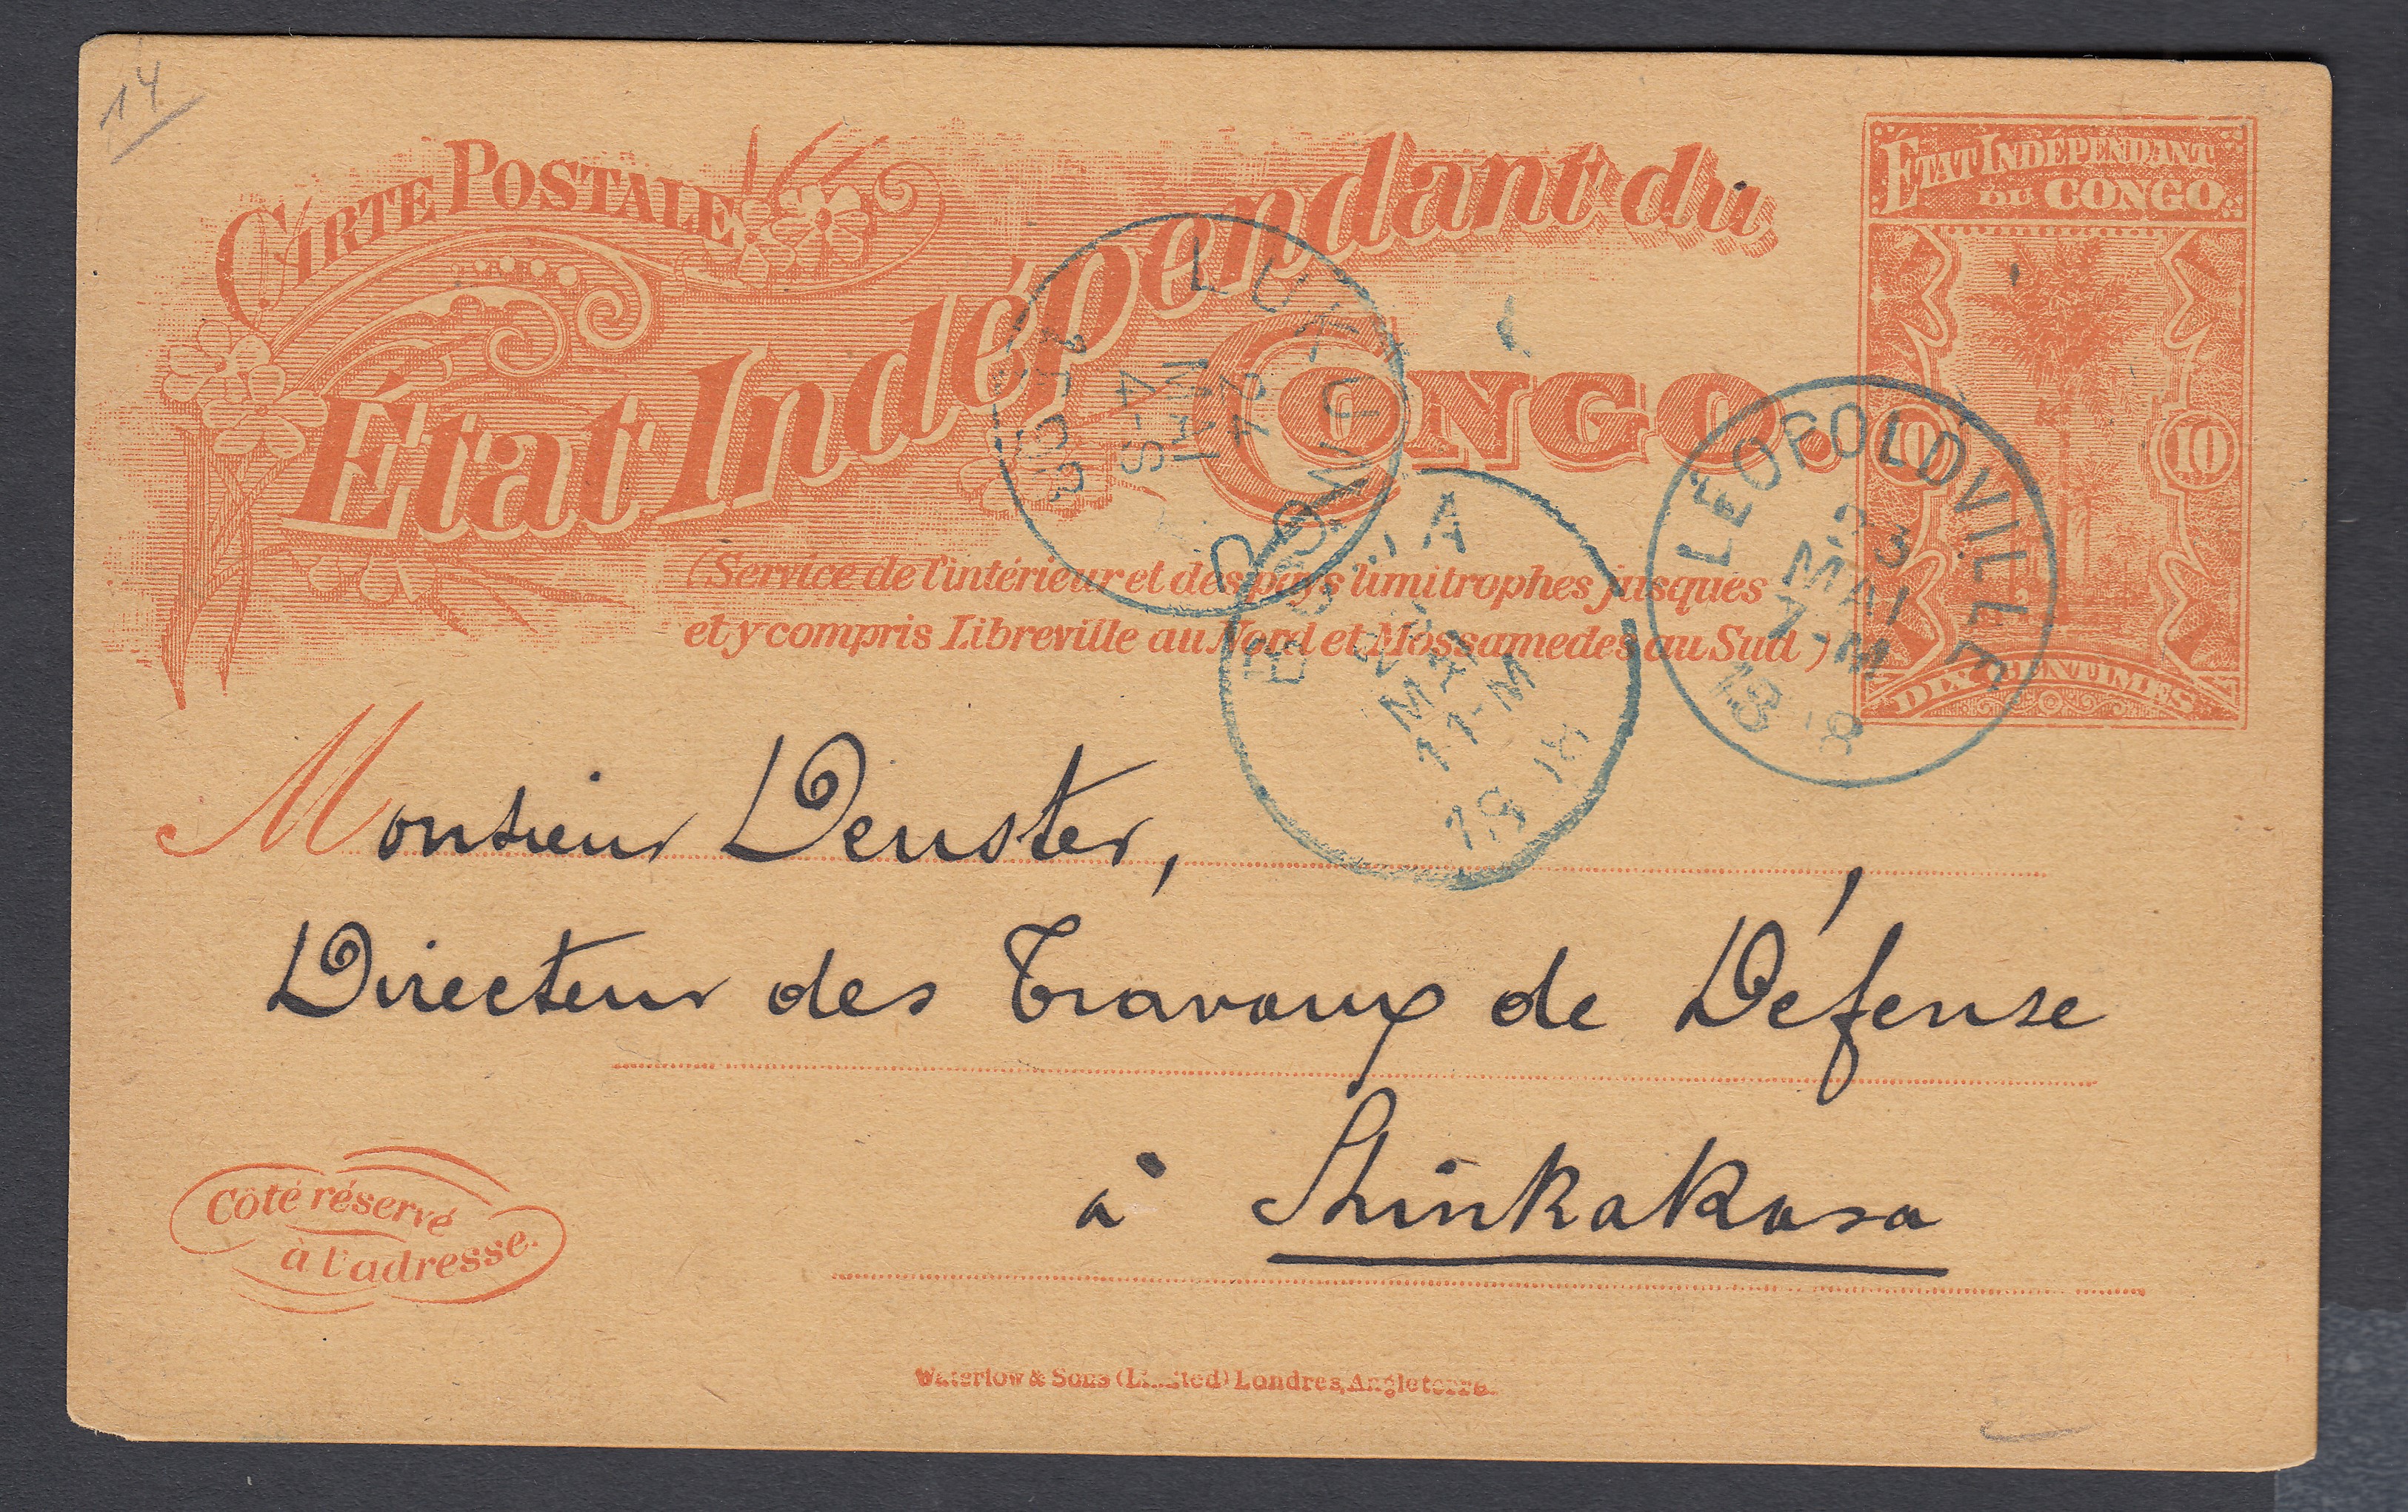 14
CARTE POSTALE
État Indépendant du
CONGO.
(Service de l'intérieur et des pays limitrophes jusques
et y compris Libreville au Nord et Mossamedes au Sud)
ÉTAT INDÉPENDANT
DU CONGO
10 10
DIX CENTIMES
LUKUNGU
24
MEI
4-S
BOMA
MAI
11-M
LÉOPOLDVILLE
23
MAI
7-M
Monsieur Deuster,
Directeur des Travaux de Défense
à Shinkakasa
Côté réservé
à l'adresse.
Waterlow & Sons (Limited) Londres, Angleterre.